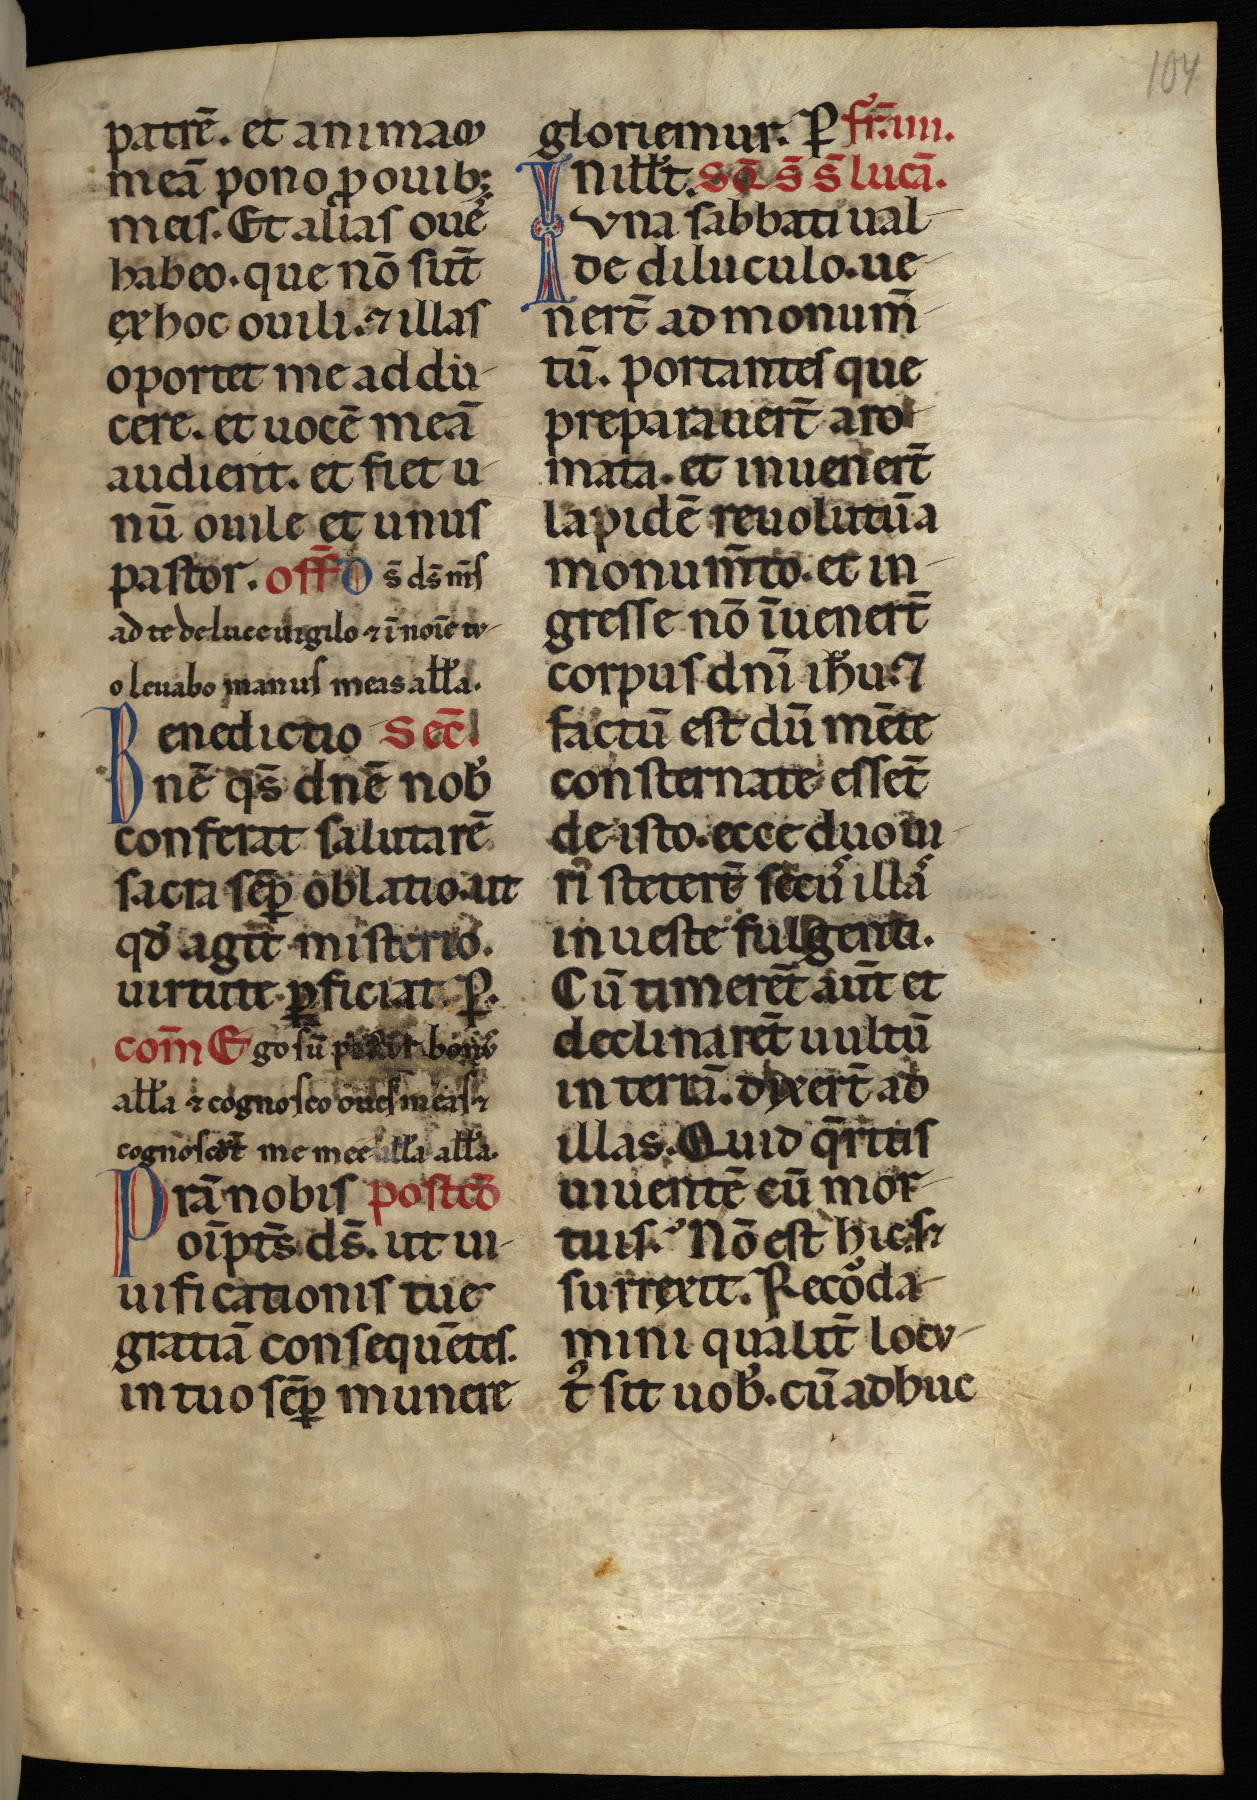 104
patrē. et animam
meā pono ꝓ ouib;
meis. Et alias oue͛
habeo. que nō sūt
ex hoc ouili. ⁊ illas
oportet me addu-
cere. et uocē meā
audient. et fiet u-
nū ouile et unus
pastor. off̄ D s̄ ds̄ m̄s
ad te de luce uigilo ⁊ ī noīe tu-
o leuabo manus meas all'a.
Benedictio Sec̄.
nē qs̄ dnē nob̓
conferat salutarē
sacra sēꝑ oblatio. ut
qd̓ agit misterio.
uirtute ꝑficiat. P̄.
com̄ Ego sū pastor bon᷒
all'a ⁊ cognosco oues meas ⁊
cognoscūt me mee all'a all'a.
Prā nobis postcō
oīpts̄ ds̄. ut ui-
uificationis tue
gratiā consequētes.
in tuo sēꝑ munere
gloriemur. P̄ fr̄. iiii.
In ill'. t. Sq̄ s̄ s̄ lucā.
una sabbati ual-
de diluculo. ue-
nert̄ ad monum̄-
tū. portantes que
preparauert̄ aro-
mata. et inuenert̄
lapidē reuolutū a
monum̄to. et in-
gresse nō īuenert̄
corpus dnī ihu. ⁊
factū est dū mēte
consternate esset̄
de isto. ecce duo ui-
ri stetert̄ sec̄u illa͛
in ueste fulgenti.
Cū timerēt aūt et
declinarēt uultū
in terrā. dixert̄ ad
illas. Quid q̄ritis
uiuentē cū mor-
tuis. Nō est hic. s;
surrexit. Reco͛da-
mini qualit̄ locu-
t᷒ sit uob̓. cū adhuc